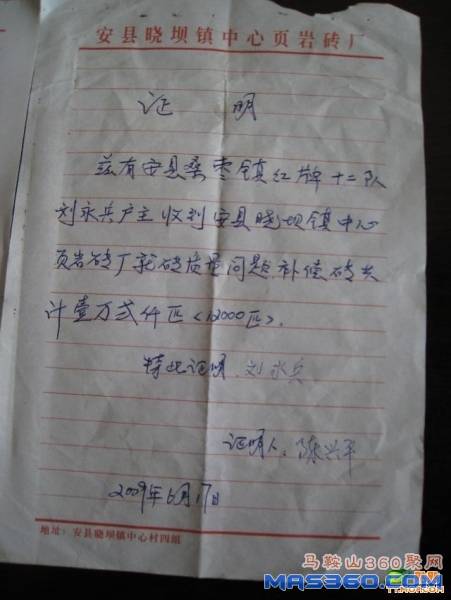 安县晓坝镇中心页岩砖厂
证 明
兹有安县桑枣镇红牌十二队
刘永兵户主收到安县晓坝镇中心
页岩砖厂 砖质量问题补偿砖共
计壹万贰仟匹<12000匹>.
特此证明 刘永兵
证明人: 陈兴平
2009年6月17日
地址:安县晓坝镇中心村四组
马鞍山360聚网
MAS360.COM